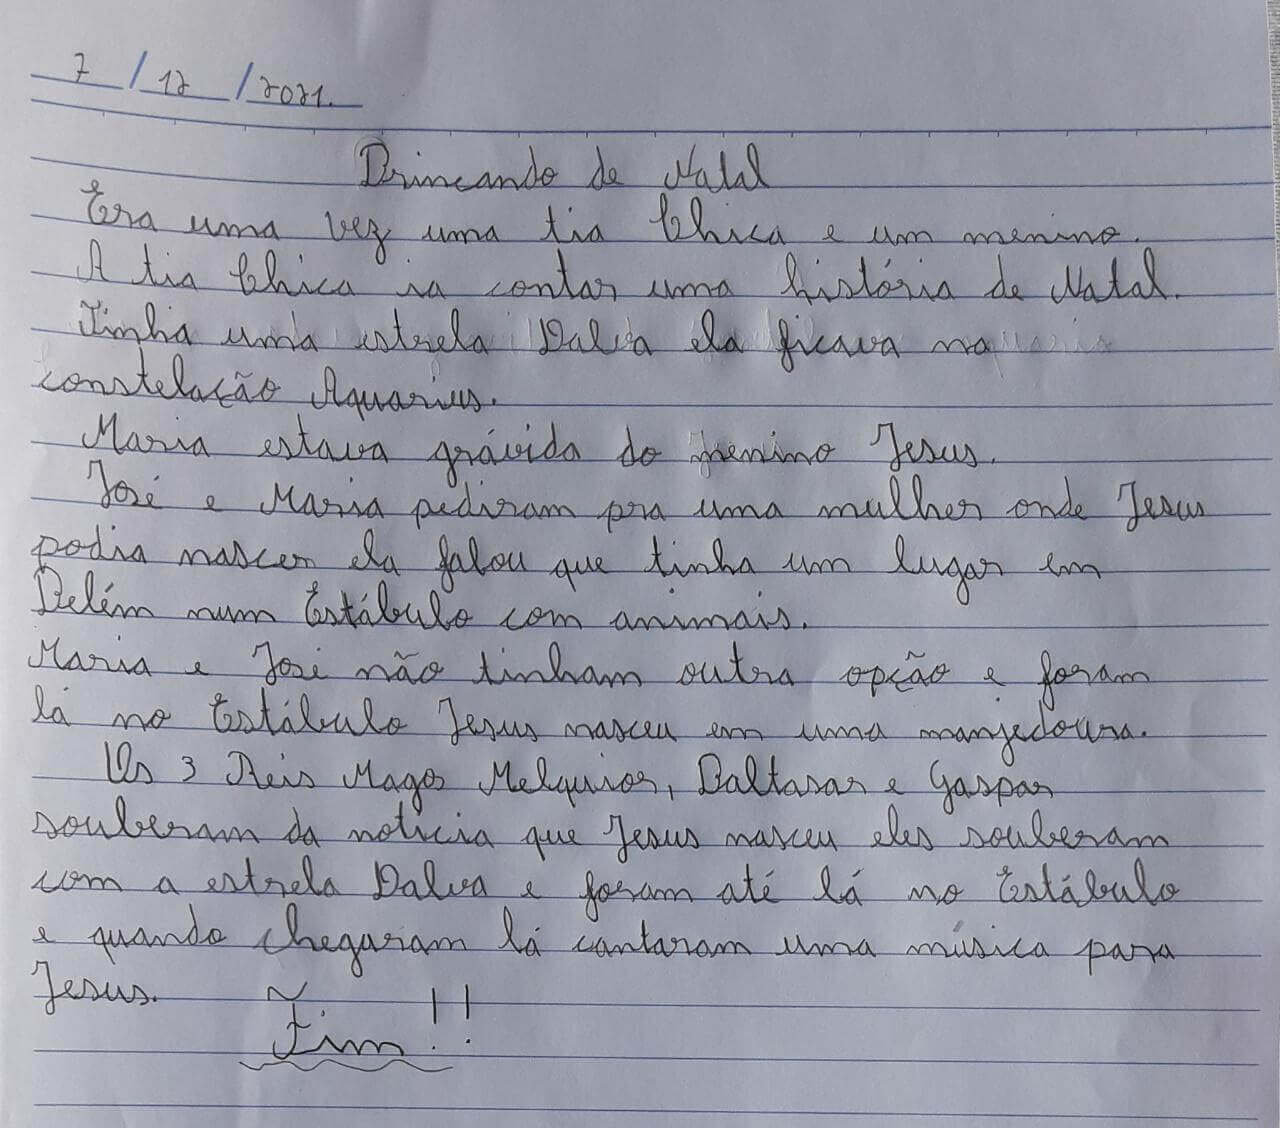 7/12/2021.
Brincando de Natal
Era uma vez uma tia Chica e um menino.
A tia Chica ia contar uma história de Natal.
Tinha uma estrela Dalva ela ficava na
constelação Aquarius.
Maria estava grávida do menino Jesus.
José e Maria pediram pra uma mulher onde Jesus
podia nascer ela falou que tinha um lugar em
Belém num Estábulo com animais.
Maria e José não tinham outra opção e foram
lá no Estábulo Jesus nasceu em uma manjedoura.
Os 3 Reis Magos Melquior, Baltasar e Gaspar
souberam da notícia que Jesus nasceu eles souberam
com a estrela Dalva e foram até lá no Estábulo
e quando chegaram lá cantaram uma música para
Jesus.
Fim!!